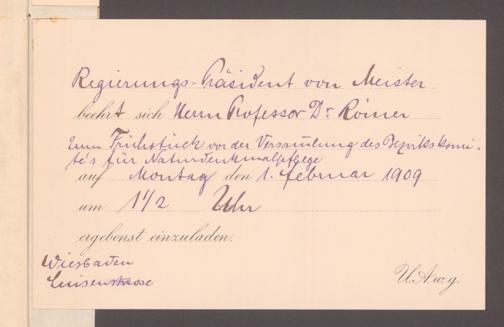 Regierungs-Präsident von Meister
beehrt sich Herrn Professor Dr Römer
zum Frühstück vor der Versamlung des Bezirkskomi-
té's für Naturdenkmalpflege
auf Montag den 1. Februar 1909
um 1 1/2 Uhr
ergebenst einzuladen.
Wiesbaden
Luisenstrasse
U. A. w. g.